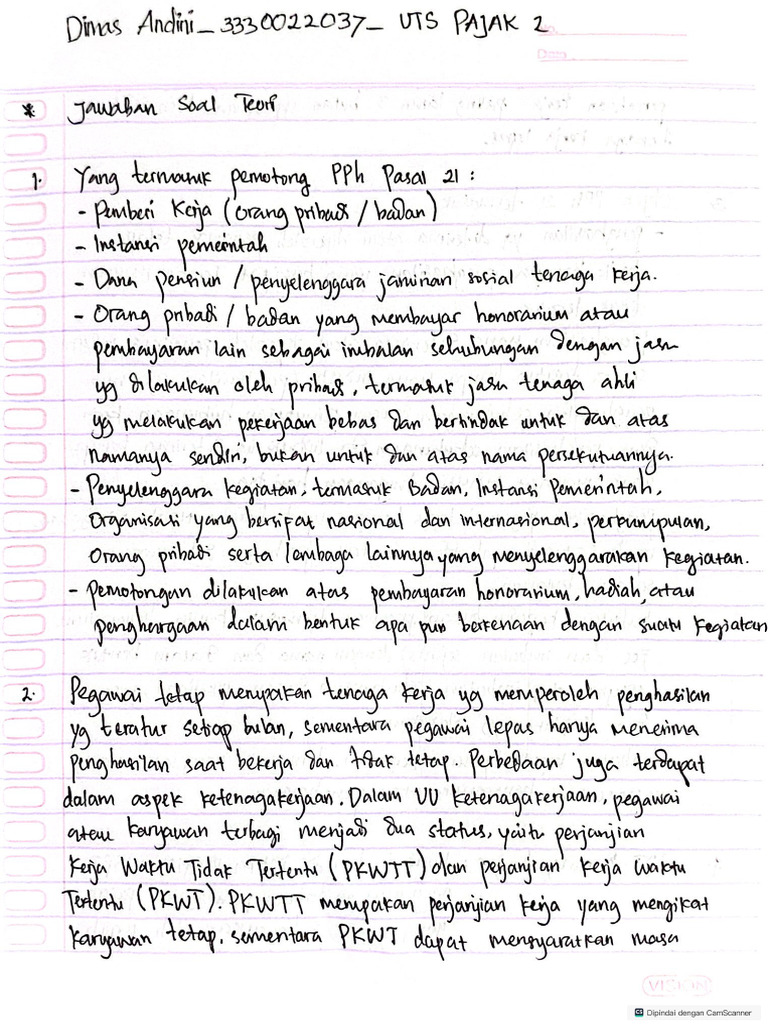 Dimas Andini_3330022037_ UTS PAJAK 2
No.
Date
* Jawaban Soal Teori
1. Yang termasuk pemotong PPh Pasal 21 :
- Pemberi Kerja (Orang pribadi / badan)
- Instansi pemerintah
- Dana pensiun / penyelenggara jaminan sosial tenaga kerja.
- Orang pribadi / badan yang membayar honorarium atau
pembayaran lain sebagai imbalan sehubungan dengan jasa
yg dilakukan oleh pribadi, termasuk jasa tenaga ahli
yg melakukan pekerjaan bebas dan bertindak untuk dan atas
namanya sendiri, bukan untuk dan atas nama persekutuannya.
- Penyelenggara kegiatan, termasuk Badan, Instansi Pemerintah,
Organisasi yang bersifat nasional dan internasional, perkumpulan,
Orang pribadi serta lembaga lainnya yang menyelenggarakan kegiatan.
- Pemotongan dilakukan atas pembayaran honorarium, hadiah, atau
penghargaan dalam bentuk apa pun berkenaan dengan suatu kegiatan
2. Pegawai tetap merupakan tenaga kerja yg memperoleh penghasilan
yg teratur setiap bulan, sementara pegawai lepas hanya menerima
penghasilan saat bekerja dan tidak tetap. Perbedaan juga terdapat
dalam aspek ketenagakerjaan. Dalam UU ketenagakerjaan, pegawai
atau karyawan terbagi menjadi dua status, yaitu perjanjian
Kerja Waktu Tidak Tertentu (PKWTT) dan perjanjian kerja waktu
Tertentu (PKWT). PKWTT merupakan perjanjian kerja yang mengikat
karyawan tetap, sementara PKWT dapat mensyaratkan masa
VISION
CS Dipindai dengan CamScanner